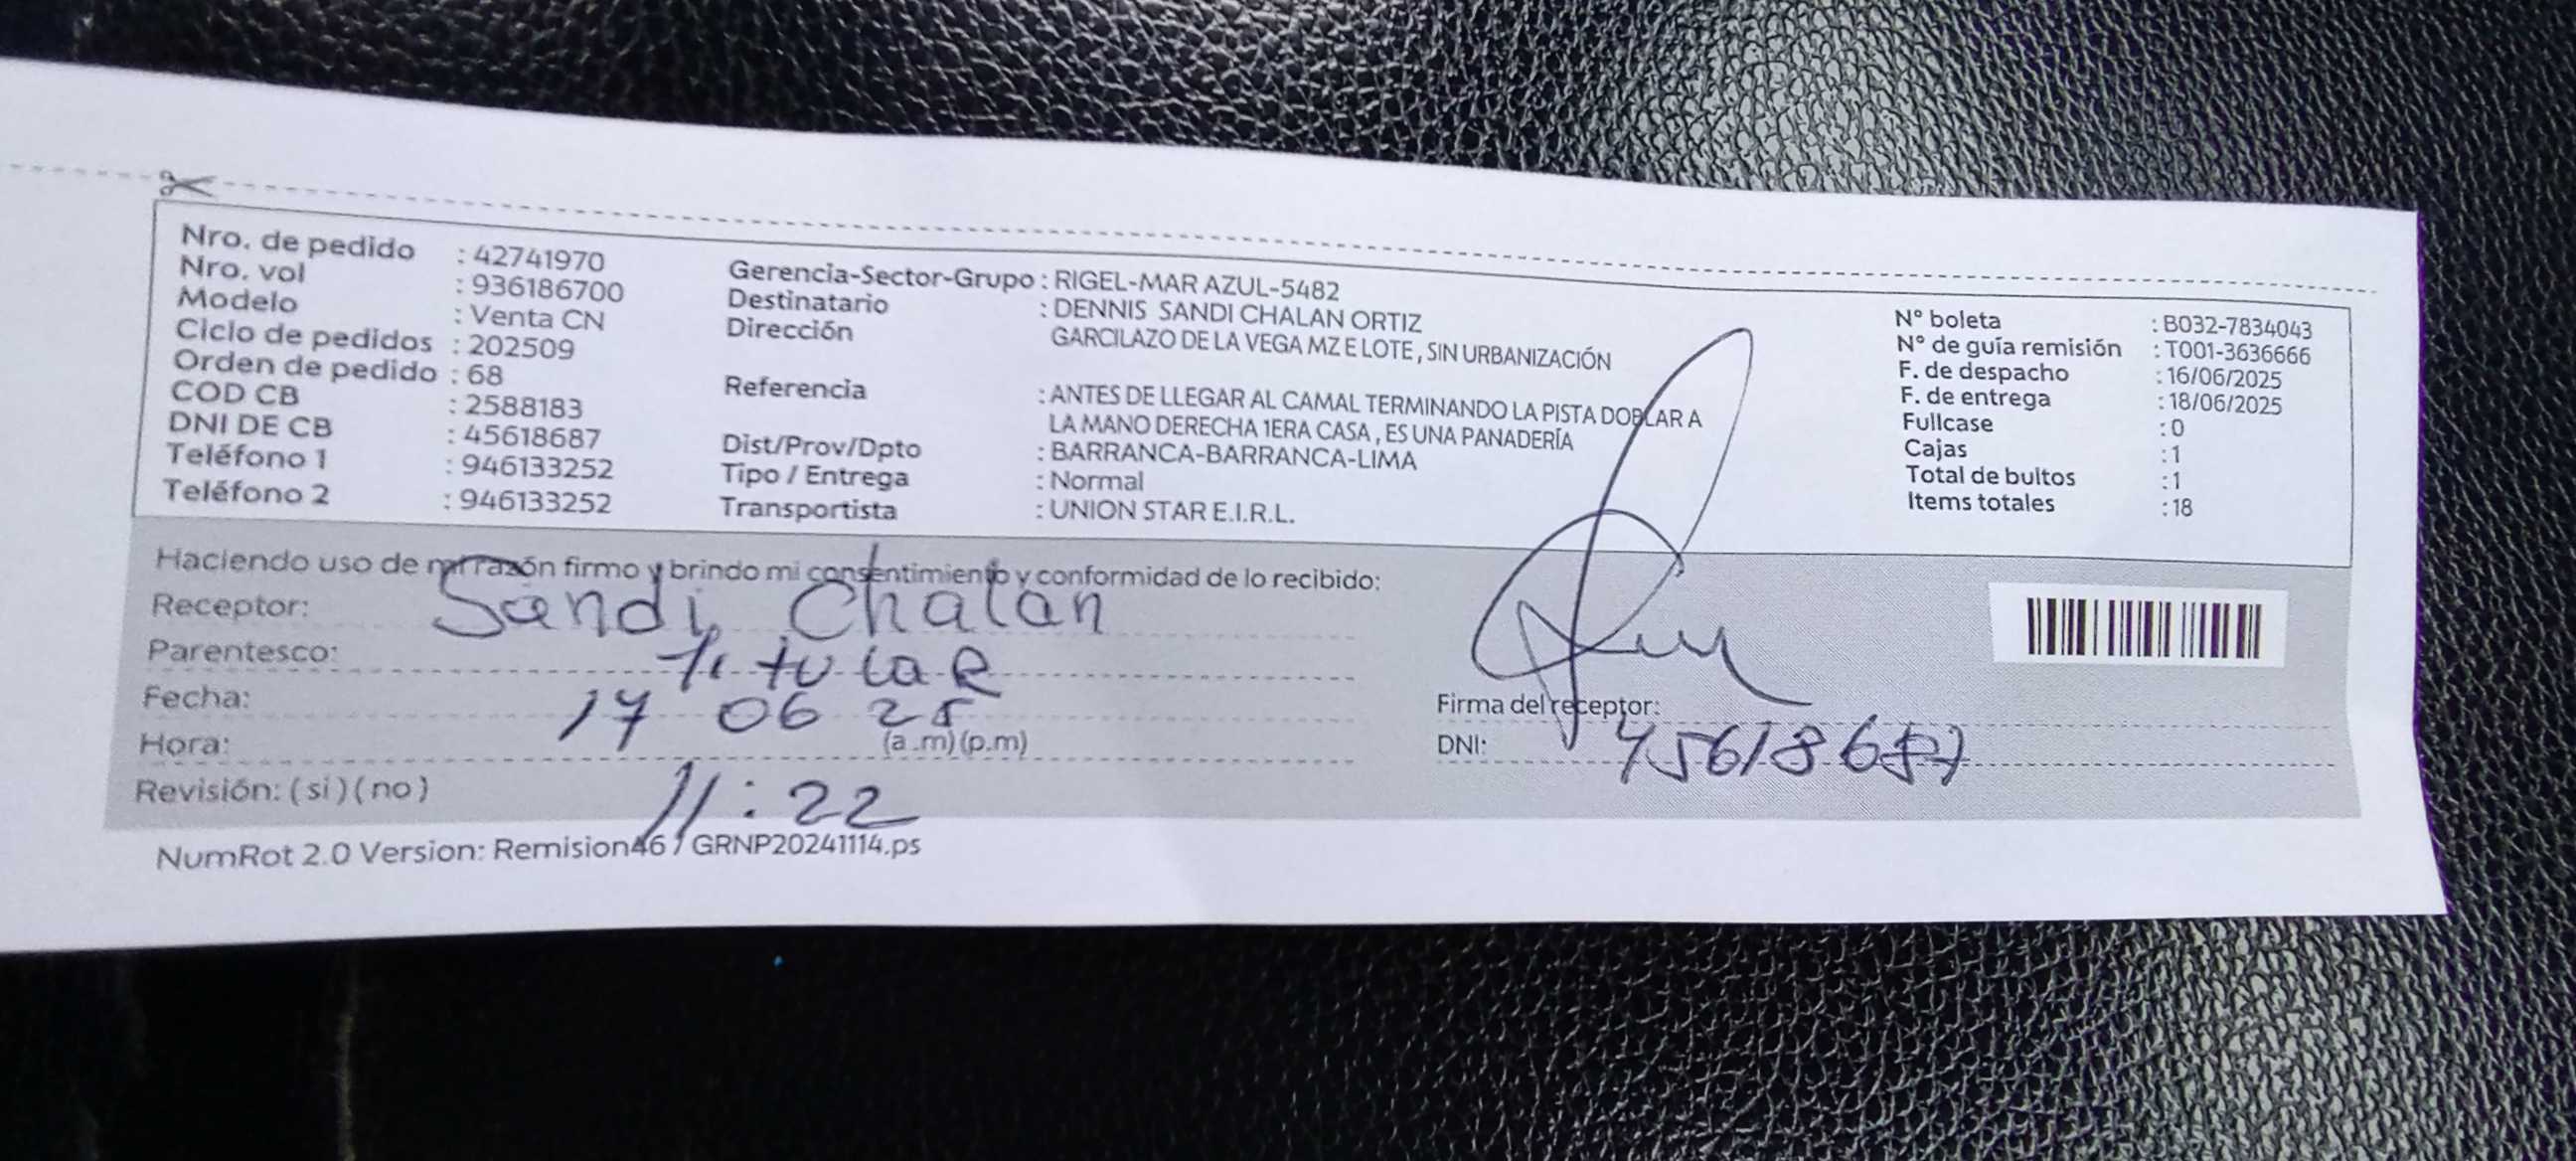 Nro. de pedido : 42741970
Nro. vol : 936186700
Modelo : Venta CN
Ciclo de pedidos : 202509
Orden de pedido : 68
COD CB : 2588183
DNI DE CB : 45618687
Teléfono 1 : 946133252
Teléfono 2 : 946133252
Gerencia-Sector-Grupo : RIGEL-MAR AZUL-5482
Destinatario : DENNIS SANDI CHALAN ORTIZ
Dirección GARCILAZO DE LA VEGA MZ E LOTE , SIN URBANIZACIÓN
Referencia : ANTES DE LLEGAR AL CAMAL TERMINANDO LA PISTA DOBLAR A
LA MANO DERECHA 1ERA CASA , ES UNA PANADERÍA
Dist/Prov/Dpto : BARRANCA-BARRANCA-LIMA
Tipo / Entrega : Normal
Transportista : UNION STAR E.I.R.L.
N° boleta : B032-7834043
N° de guía remisión : T001-3636666
F. de despacho : 16/06/2025
F. de entrega : 18/06/2025
Fullcase : 0
Cajas : 1
Total de bultos : 1
Items totales : 18
Haciendo uso de mi razón firmo y brindo mi consentimiento y conformidad de lo recibido:
Receptor: Sandi Chalan
Parentesco: TitulaR
Fecha: 17 06 25
Hora: (a .m) (p.m)
Revisión: ( si ) ( no ) 11:22
Firma del receptor:
DNI: 45618687
NumRot 2.0 Version: Remision46 / GRNP20241114.ps